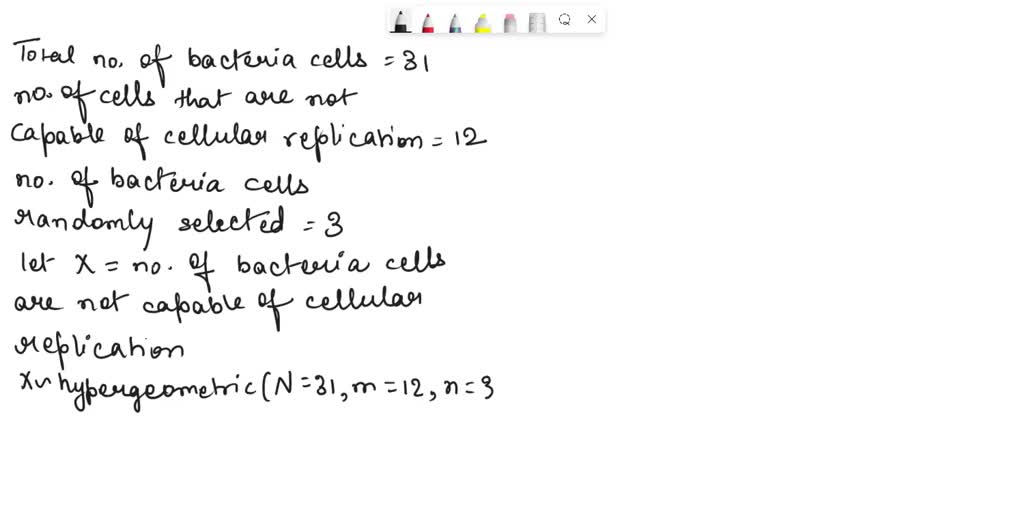 Total no. of bacteria cells = 31
no. of cells that are not
capable of cellular replication = 12
no. of bacteria cells
randomly selected = 3
let X = no. of bacteria cells
are not capable of cellular
replication
X ~ hypergeometric (N = 31, m = 12, n = 3